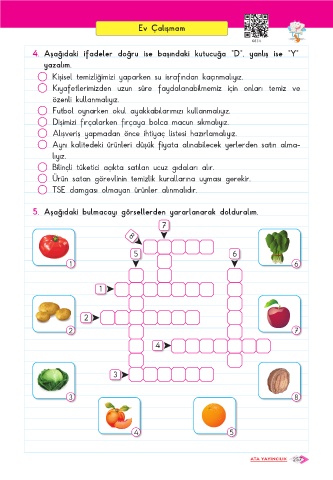 Ev Çalışmam
4. Aşağıdaki ifadeler doğru ise başındaki kutucuğa "D", yanlış ise "Y"
yazalım.
Kişisel temizliğimizi yaparken su israfından kaçınmalıyız.
Kıyafetlerimizden uzun süre faydalanabilmemiz için onları temiz ve
özenli kullanmalıyız.
Futbol oynarken okul ayakkabılarımızı kullanmalıyız.
Dişimizi fırçalarken fırçaya bolca macun sıkmalıyız.
Alışveriş yapmadan önce ihtiyaç listesi hazırlamalıyız.
Aynı kalitedeki ürünleri düşük fiyata alınabilecek yerlerden satın alma-
lıyız.
Bilinçli tüketici açıkta satılan ucuz gıdaları alır.
Ürün satan görevlinin temizlik kurallarına uyması gerekir.
TSE damgası olmayan ürünler alınmalıdır.
5. Aşağıdaki bulmacayı görsellerden yararlanarak dolduralım.
7
8
5
6
1
6
1
2
2
7
4
3
3
8
4
5
ATA YAYINCILIK